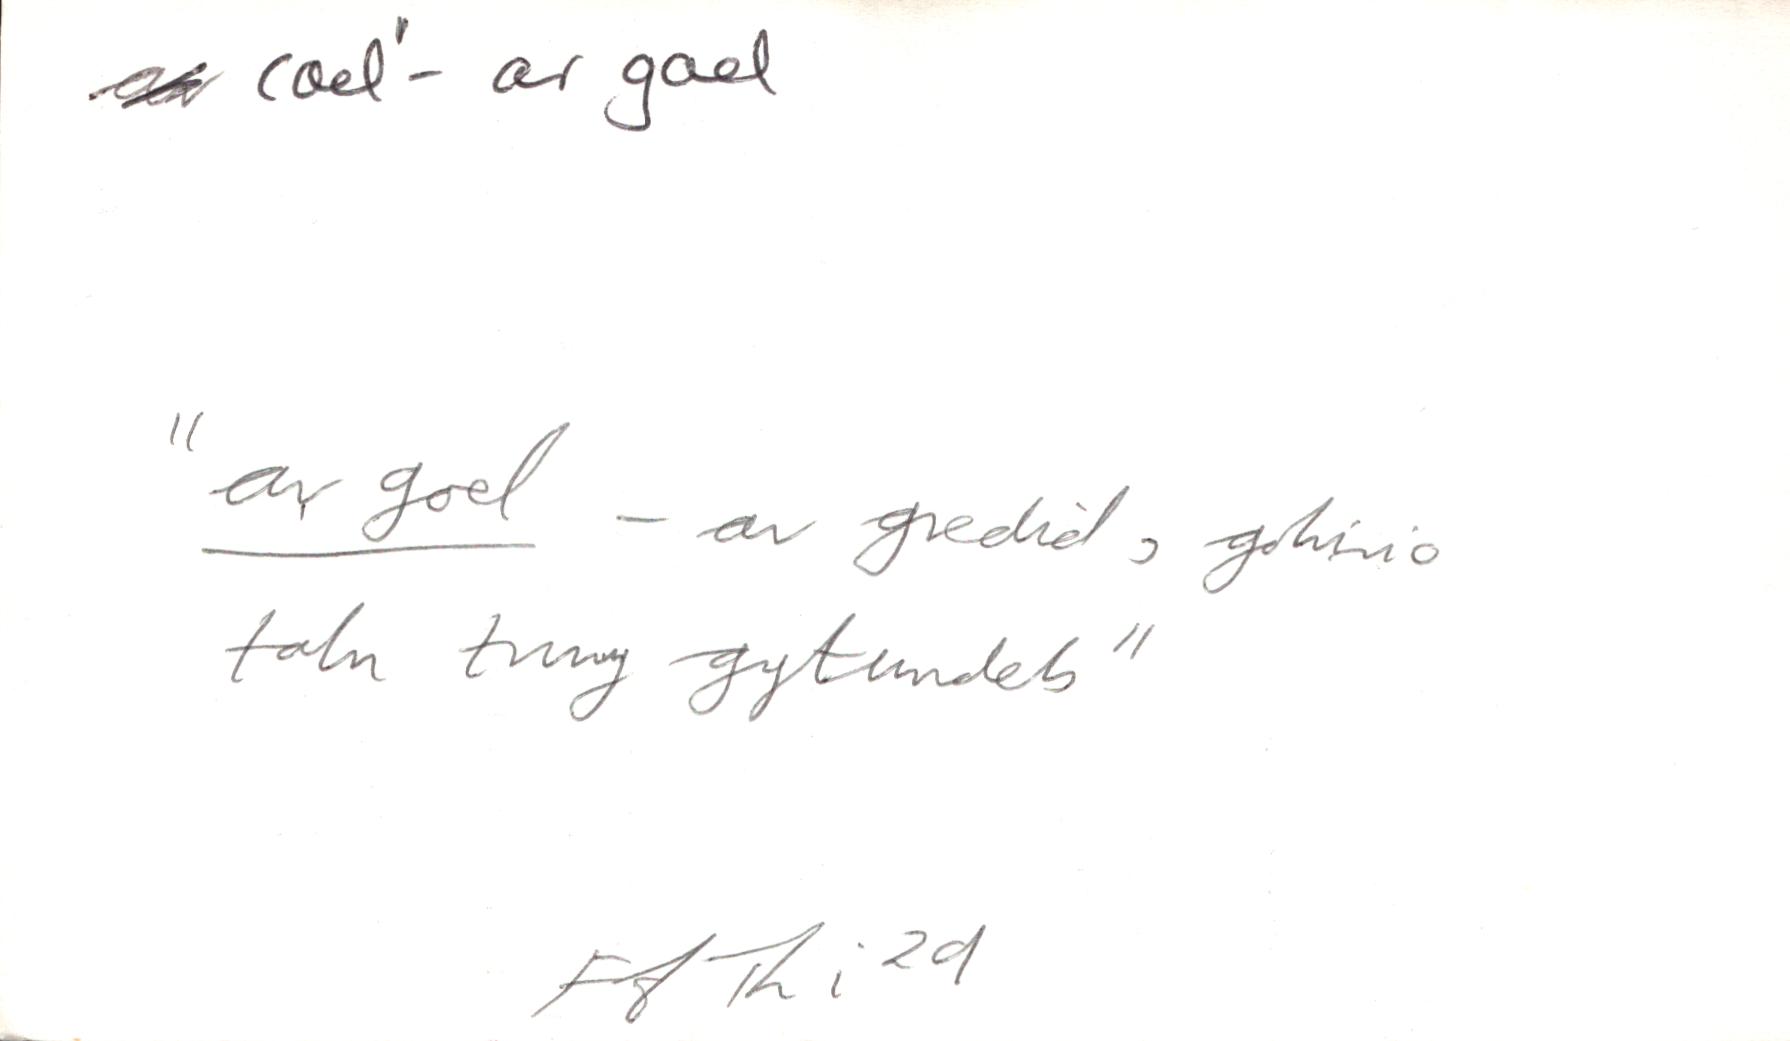 coel¹ - ar goel
"ar goel - ar gredid, gohirio
talu trwy gytundeb"
FfTh i 29